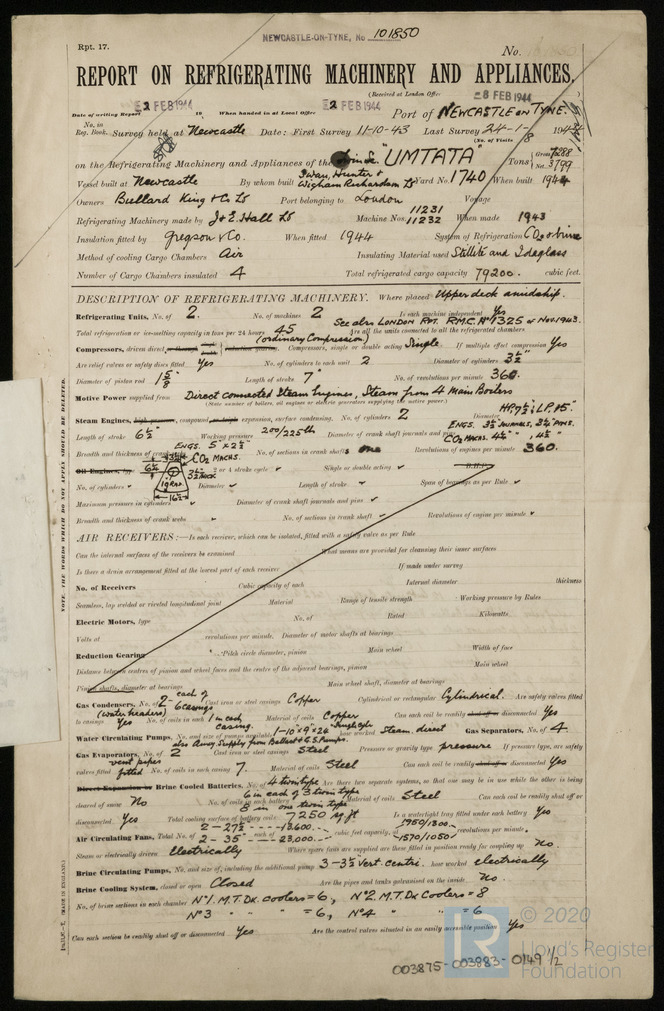 NEWCASTLE-ON-TYNE, No 101850
Rpt. 17.
No.
REPORT ON REFRIGERATING MACHINERY AND APPLIANCES.
(Received at London Office -8 FEB 1944
Date of writing Report 2 FEB 1944 19 When handed in at Local Office 2 FEB 1944 Port of NEWCASTLE ON TYNE.
No. in Reg. Book. Survey held at Newcastle Date: First Survey 11-10-43 Last Survey 24-1- 1944
(No. of Visits 8
on the Refrigerating Machinery and Appliances of the "UMTATA" Tons Gross 7288 Net 3799
Vessel built at Newcastle By whom built Swan, Hunter & Wigham Richardson Ld Yard No. 1740 When built 1944
Owners Bullard King & Co Ld Port belonging to London Voyage
Refrigerating Machinery made by J & E. Hall Ld Machine Nos. 11231 11232 When made 1943
Insulation fitted by Gregson & Co. When fitted 1944 System of Refrigeration CO2 & brine
Method of cooling Cargo Chambers Air Insulating Material used Stillite and Idaglass
Number of Cargo Chambers insulated 4 Total refrigerated cargo capacity 79200. cubic feet.
DESCRIPTION OF REFRIGERATING MACHINERY. Where placed Upper deck amidship.
Refrigerating Units, No. of 2. No. of machines 2 Is each machine independent Yes
See also LONDON RPT. R.M.C. No 1325 of Nov 1943.
Total refrigeration or ice-melting capacity in tons per 24 hours 45 Are all the units connected to all the refrigerated chambers
(ordinary Compression)
Compressors, driven direct Compressors, single or double acting Single. If multiple effect compression Yes
Are relief valves or safety discs fitted Yes No. of cylinders to each unit 2 Diameter of cylinders 3½"
Diameter of piston rod 1⅝" Length of stroke 7" No. of revolutions per minute 360.
Motive Power supplied from Direct connected Steam Engines, Steam from 4 Main Boilers
(State number of boilers, oil engines or electric generators supplying the motive power.)
Steam Engines, high pressure, compound expansion, surface condensing. No. of cylinders 2 Diameter HP.
Length of stroke 6½" Working pressure 200/225 lb Diameter of crank shaft journals and pins
ENGS. 5" x 2½"
Breadth and thickness of crank webs CO2 MACHS. No. of sections in crank shaft one Revolutions of engines per minute 360.
Oil Engines, type 2 or 4 stroke cycle Single or double acting B.H.P.
No. of cylinders Diameter Length of stroke Span of bearings as per Rule
Maximum pressure in cylinders Diameter of crank shaft journals and pins
Breadth and thickness of crank webs No. of sections in crank shaft Revolutions of engine per minute
AIR RECEIVERS:—Is each receiver, which can be isolated, fitted with a safety valve as per Rule
Can the internal surfaces of the receivers be examined What means are provided for cleansing their inner surfaces
Is there a drain arrangement fitted at the lowest part of each receiver If made under survey
No. of Receivers Cubic capacity of each Internal diameter thickness
Seamless, lap welded or riveted longitudinal joint Material Range of tensile strength Working pressure by Rules
Electric Motors, type No. of Rated Kilowatts
Volts at revolutions per minute. Diameter of motor shafts at bearings
Reduction Gearing Pitch circle diameter, pinion Main wheel Width of face
Distance between centres of pinion and wheel faces and the centre of the adjacent bearings, pinion Main wheel
Pinion shafts, diameter at bearings Main wheel shaft, diameter at bearings
Gas Condensers, No. of 2 each of 6 casings Cast iron or steel casings Copper Cylindrical or rectangular Cylindrical. Are safety valves fitted
(water headers)
to casings Yes No. of coils in each 1 in each casing. Material of coils Copper Can each coil be readily shut off or disconnected Yes
Water Circulating Pumps, No. and size of pumps available 1-10"x9"x24 how worked Steam direct Gas Separators, No. of 4
also Away Supply from Ballast & G.S. Pumps.
Gas Evaporators, No. of 2 Cast iron or steel casings Steel Pressure or gravity type pressure If pressure type, are safety
vent pipes
valves fitted fitted No. of coils in each casing 7. Material of coils Steel Can each coil be readily shut off or disconnected Yes
Direct Expansion or Brine Cooled Batteries, No. of 4 twin type Are there two separate systems, so that one may be in use while the other is being
cleared of snow No No. of coils in each battery 6 in each of 3 twin type 8 in one twin type Material of coils Steel Can each coil be readily shut off or
disconnected Yes Total cooling surface of battery coils 7250 sq. ft Is a watertight tray fitted under each battery Yes
Air Circulating Fans, Total No. of 2-27½" 2-35" each of 13,600 23,000. cubic feet capacity, at 1950/1300 1570/1050 revolutions per minute.
Steam or electrically driven Electrically Where spare fans are supplied are these fitted in position ready for coupling up No.
Brine Circulating Pumps, No. and size of, including the additional pump 3-3½ Vert. centri. how worked electrically
Brine Cooling System, closed or open Closed Are the pipes and tanks galvanised on the inside No.
No. of brine sections in each chamber No 1. M.T. Dk coolers = 6, No 2. M.T. Dk Coolers = 8
No 3 " " " = 6, No 4 " " = 6
Can each section be readily shut off or disconnected Yes Are the control valves situated in an easily accessible position Yes
NOTE.—THE WORDS WHICH DO NOT APPLY SHOULD BE DELETED.
(MADE IN ENGLAND.)
LR
© 2020
Lloyd's Register
Foundation
003875-003883-0149 1/2